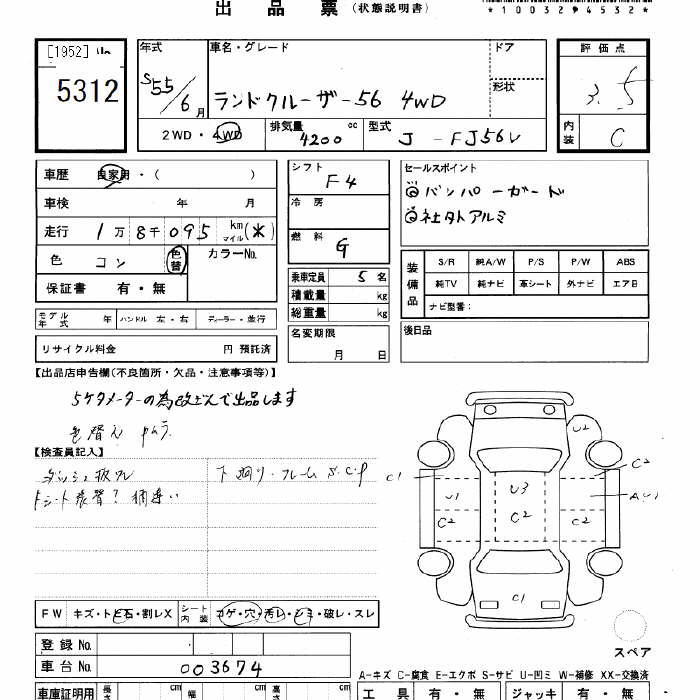 出品票 (状態説明書)
*1003294532*
[1952]
5312
年式 S55/6月
車名・グレード ランドクルーザー56 4WD
ドア
形状
2WD・4WD
排気量 4200 cc
型式 J-FJ56V
評価点 3.5
内装 C
車歴 自家用・( )
車検 年 月
走行 1万8千095 km マイル (米)
色 コン 色替 カラーNo.
保証書 有・無
モデル年式 年 ハンドル 左・右 ディーラー・並行
リサイクル料金 円 預託済
シフト F4
冷房
燃料 G
乗車定員 5名
積載量 kg
総重量 kg
名変期限 月 日
セールスポイント
バンパーガード
社外アルミ
装備品
S/R 純A/W P/S P/W ABS
純TV 純ナビ 革シート 外ナビ エアB
ナビ型番:
後日品
【出品店申告欄(不良箇所・欠品・注意事項等)】
5ケタメーターの為改ざんで出品します
色替え
【検査員記入】
下廻り・フレーム S.C
C1
U1
C2
U3
C2
U2
C2
C2
C1
FW キズ・トビ石・割レX
シート内装 コゲ・穴・汚レ・シミ・破レ・スレ
登録No.
車台No. 003674
スペア
A-キズ C-腐食 E-エクボ S-サビ U-凹ミ W-補修 XX-交換済
車庫証明用 長さ cm 幅 cm 高さ cm
工具 有・無 ジャッキ 有・無